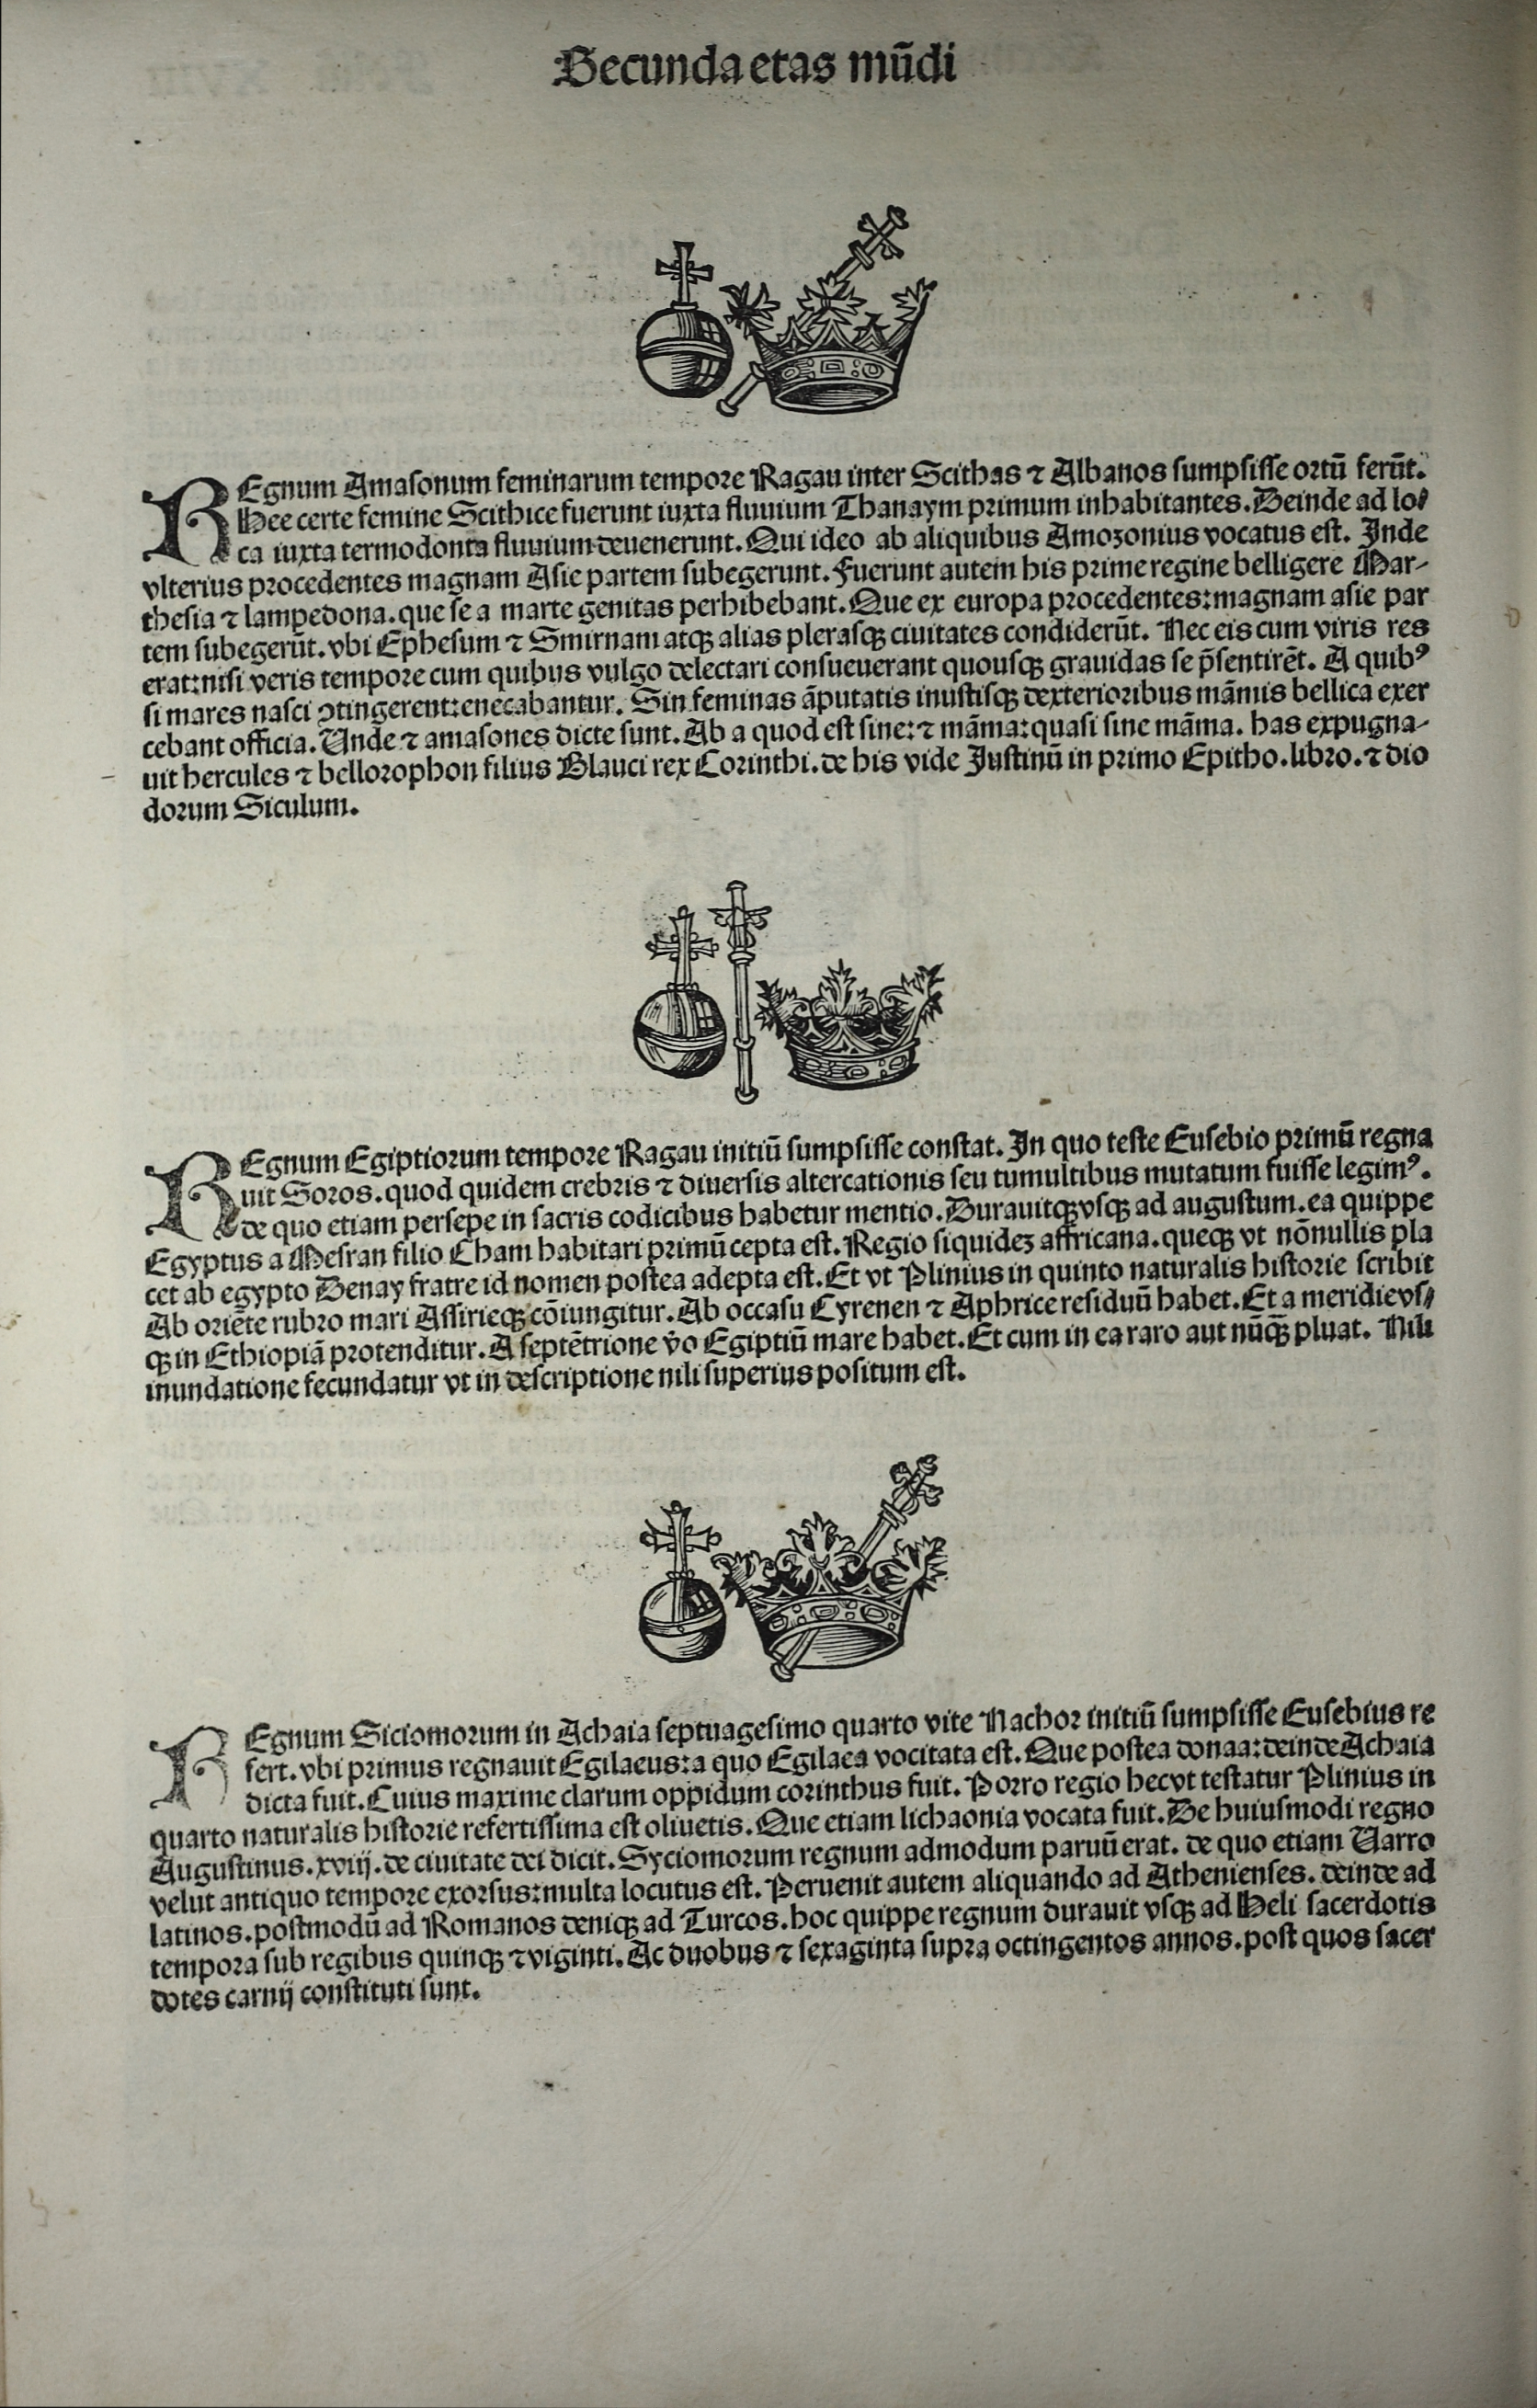 Secunda etas mūdi
REgnum Amasonum feminarum tempore Ragau inter Scithas ⁊ Albanos sumpsisse ortū ferūt.
Hee certe femine Scithice fuerunt iuxta fluuium Thanaym primum inhabitantes. Deinde ad lo⸗
ca iuxta termodonta fluuium deuenerunt. Qui ideo ab aliquibus Amozonius vocatus est. Inde
vlterius procedentes magnam Asie partem subegerunt. Fuerunt autem his prime regine belligere Mar-
thesia ⁊ lampedona. que se a marte genitas perhibebant. Que ex europa procedentes: magnam asie par
tem subegerūt. vbi Ephesum ⁊ Smirnam atqꝫ alias plerasqꝫ ciuitates condiderūt. Nec eis cum viris res
erat: nisi veris tempore cum quibus vulgo delectari consueuerant quousqꝫ grauidas se p̄sentirēt. A quibꝰ
si mares nasci ꝯtingerent: enecabantur. Sin feminas āputatis inustisqꝫ dexterioribus mām̄is bellica exer
cebant officia. Unde ⁊ amasones dicte sunt. Ab a quod est sine: ⁊ māma: quasi sine māma. has expugna-
uit hercules ⁊ bellorophon filius Glauci rex Corinthi. de his vide Iustinū in primo Epitho. libro. ⁊ dio
dorum Siculum.
REgnum Egiptiorum tempore Ragau initiū sumpsisse constat. In quo teste Eusebio primū regna
uit Soros. quod quidem crebris ⁊ diuersis altercationis seu tumultibus mutatum fuisse legimꝰ.
de quo etiam persepe in sacris codicibus habetur mentio. Durauitqꝫ vsqꝫ ad augustum. ea quippe
Egyptus a Mesran filio Cham habitari primū cepta est. Regio siquideꝫ affricana. queqꝫ vt nōnullis pla
cet ab egypto Denay fratre id nomen postea adepta est. Et vt Plinius in quinto naturalis historie scribit
Ab oriēte rubro mari Assirieqꝫ cōiungitur. Ab occasu Cyrenen ⁊ Aphrice residuū habet. Et a meridie vs⸗
qꝫ in Ethiopiā protenditur. A septētrione v̄o Egiptiū mare habet. Et cum in ea raro aut nūqꝫ̄ pluat. Nili
inundatione fecundatur vt in descriptione nili superius positum est.
REgnum Siciomorum in Achaia septuagesimo quarto vite Nachor initiū sumpsisse Eusebius re
fert. vbi primus regnauit Egilaeus: a quo Egilaea vocitata est. Que postea donaa: deinde Achaia
dicta fuit. Cuius maxime clarum oppidum corinthus fuit. Porro regio hec vt testatur Plinius in
quarto naturalis historie refertissima est oliuetis. Que etiam lichaonia vocata fuit. De huiusmodi regno
Augustinus. xviij. de ciuitate dei dicit. Syciomorum regnum admodum paruū erat. de quo etiam Varro
velut antiquo tempore exorsus: multa locutus est. Peruenit autem aliquando ad Athenienses. deinde ad
latinos. postmodū ad Romanos deniqꝫ ad Turcos. hoc quippe regnum durauit vsqꝫ ad Heli sacerdotis
tempora sub regibus quinqꝫ ⁊ viginti. Ac duobus ⁊ sexaginta supra octingentos annos. post quos sacer
dotes carnij constituti sunt.